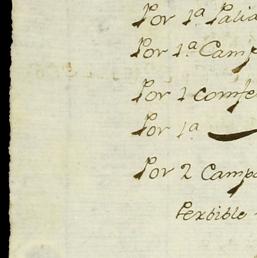 Por 1ª Palia
Por 1ª Camp
Por 1 comfe
Por 1ª
Por 2 Campa